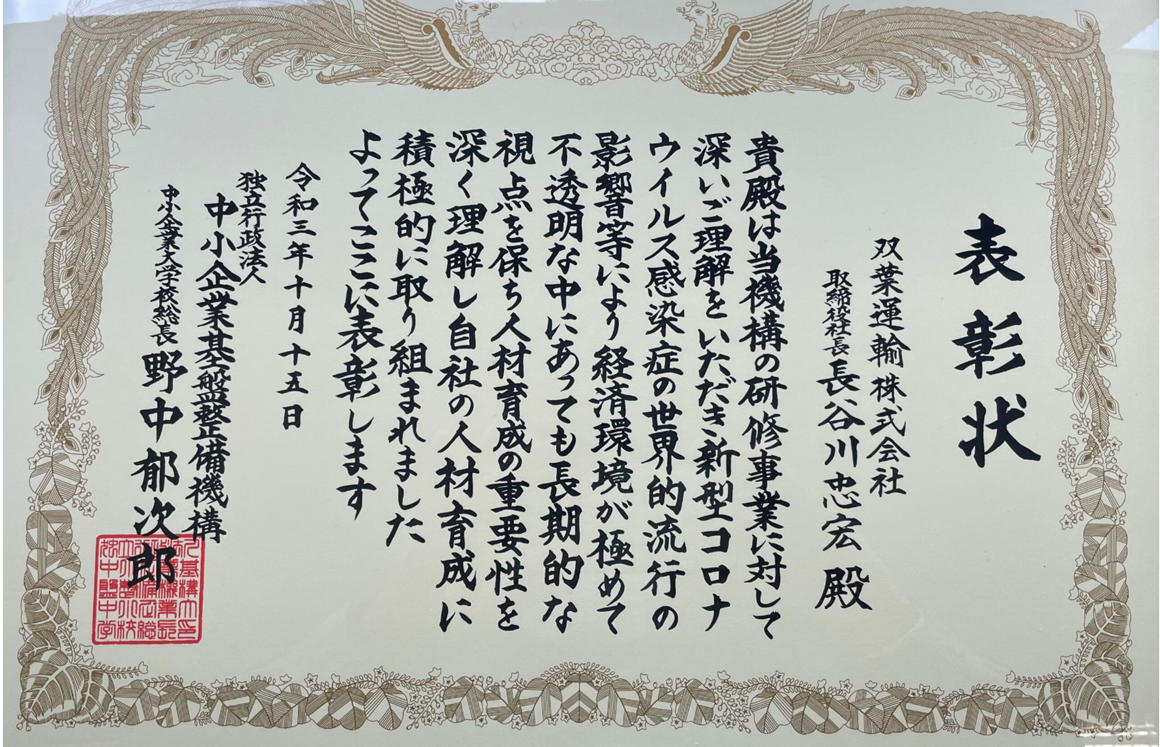 表彰状
双葉運輸株式会社
取締役社長 長谷川忠宏 殿
貴殿は当機構の研修事業に対して
深いご理解をいただき新型コロナ
ウイルス感染症の世界的流行の
影響等により経済環境が極めて
不透明な中にあっても長期的な
視点を保ち人材育成の重要性を
深く理解し自社の人材育成に
積極的に取り組まれました
よってここに表彰します
令和三年十月十五日
独立行政法人
中小企業基盤整備機構
中小企業大学校総長 野中郁次郎